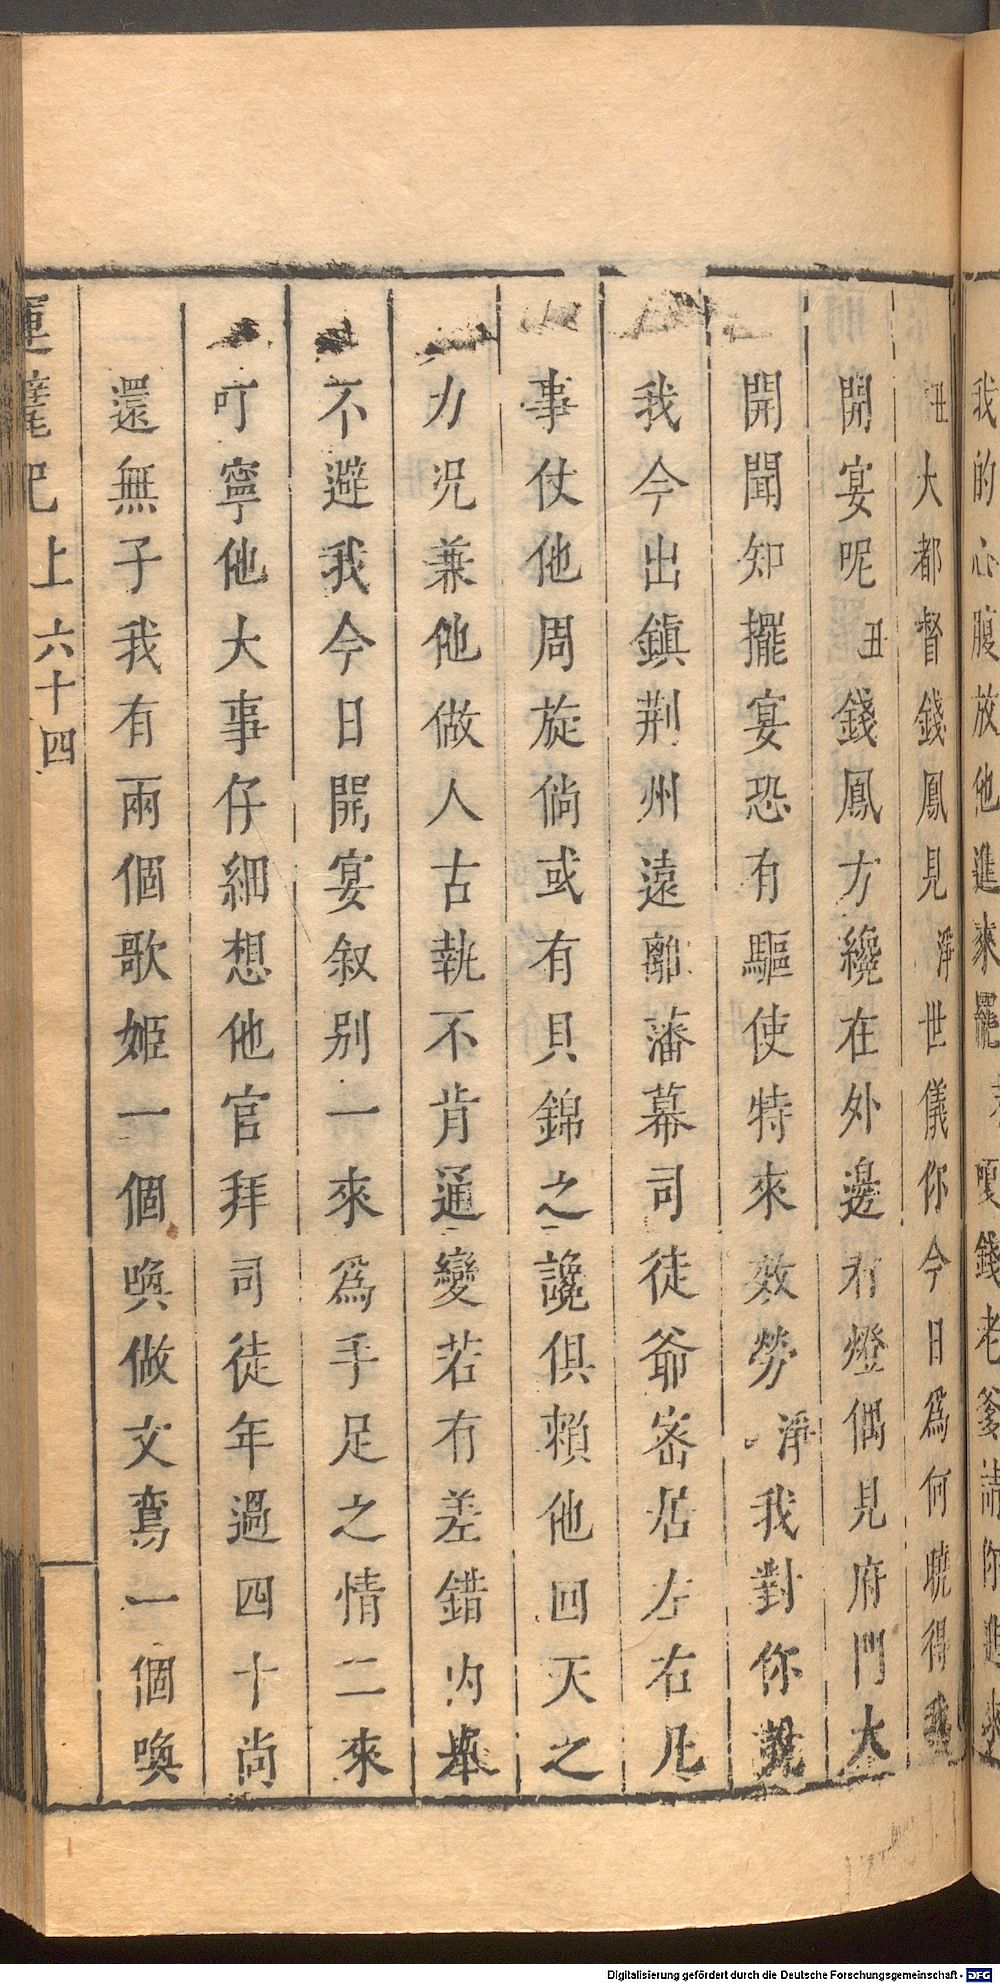 我的心腹放他進來罷末嗄錢老爹請你進來
丑大都督錢鳳見淨世儀你今日為何曉得我
開宴呢丑錢鳳方纔在外邊有燈偶見府門大
開聞知擺宴恐有驅使特來效勞淨我對你說
我今出鎮荆州遠離藩幕司徒爺密居左右凡
事仗他周旋倘或有貝錦之讒俱賴他回天之
力况兼他做人古執不肯通變若有差錯内舉
不避我今日開宴叙别一來爲手足之情二來
叮寧他大事仔細想他官拜司徒年過四十尚
還無子我有兩個歌姬一個喚做文鸞一個喚
運甓記上六十四
Digitalisierung gefördert durch die Deutsche Forschungsgemeinschaft - DFG